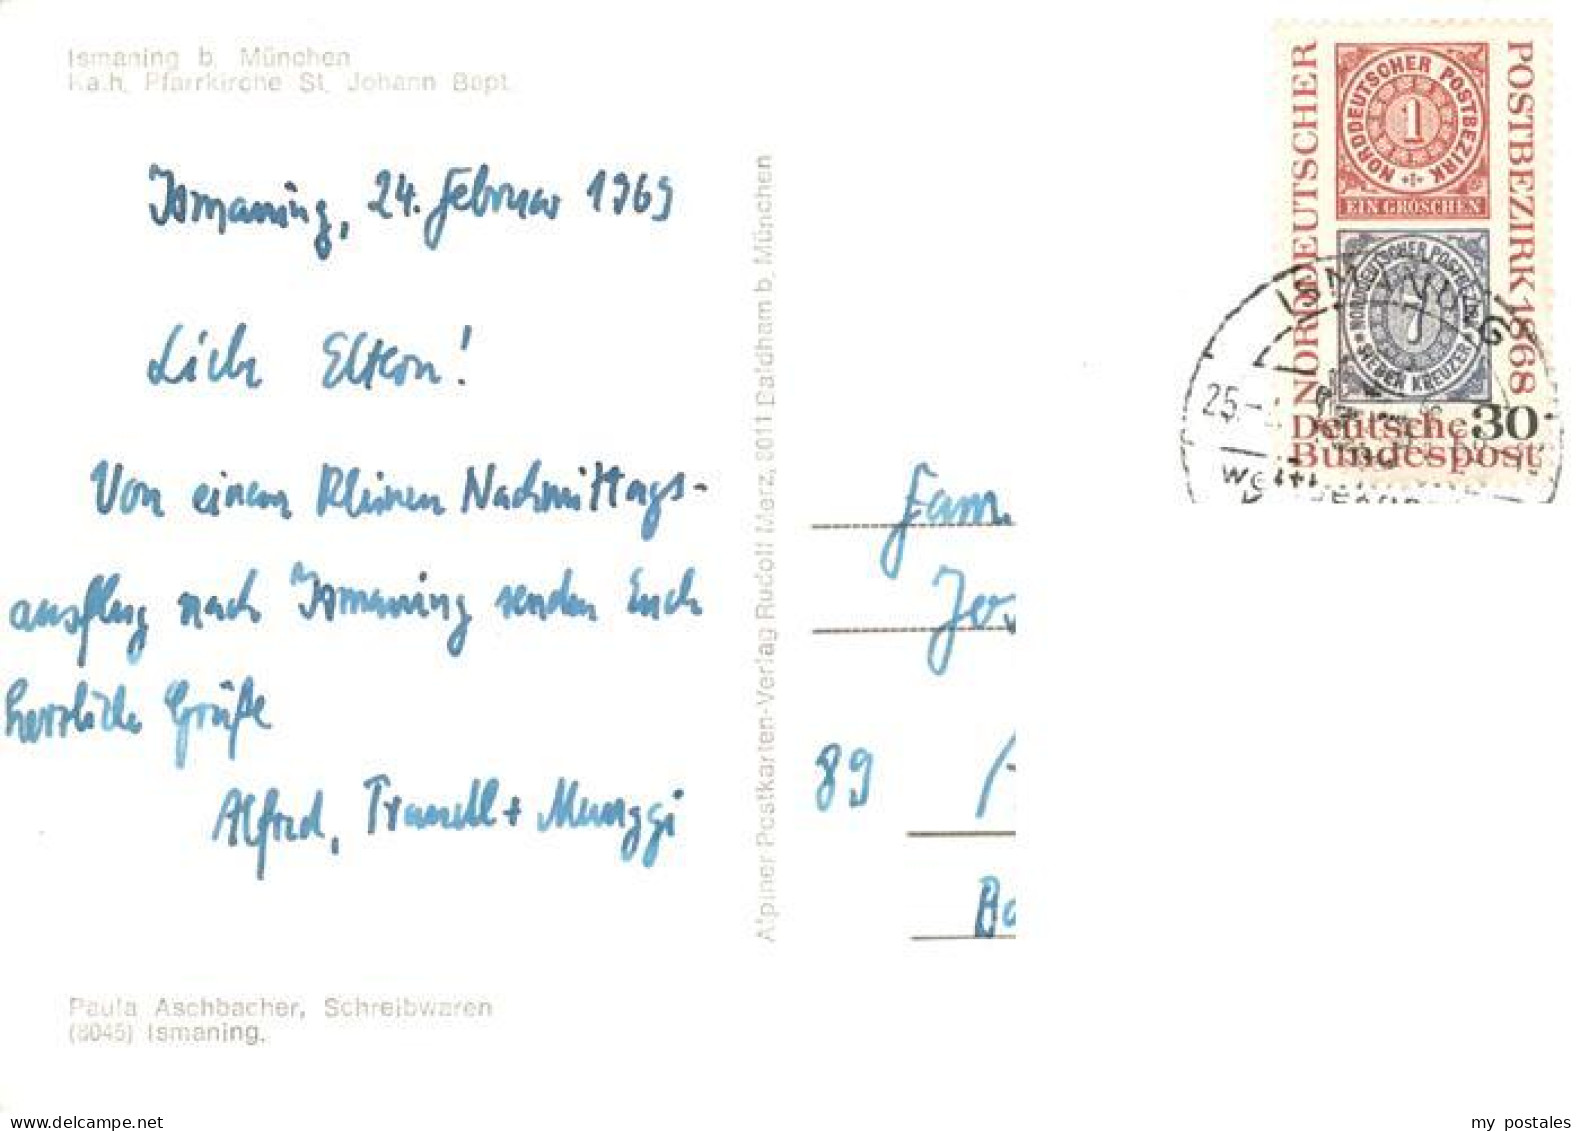 Ismaning b. München
Kath. Pfarrkirche St. Johann Bapt.
Ismaning, 24. Februar 1969
Liebe Eltern!
Von einem kleinen Nachmittags-
ausflug nach Ismaning senden Euch
herzliche Grüße
Alfred, Traudl +
Paula Aschbacher, Schreibwaren
(8045) Ismaning.
Alpiner Postkarten-Verlag Rudolf Merz, 8011 Baldham b. München
Fam.
Jos
89
NORDDEUTSCHER
POSTBEZIRK 1868
NORDDEUTSCHER POSTBEZIRK
1
EIN GROSCHEN
NORDDEUTSCHER POSTBEZIRK
7
SIEBEN KREUZER
Deutsche 30
Bundespost
ISMANING
25.
my postales
www.delcampe.net